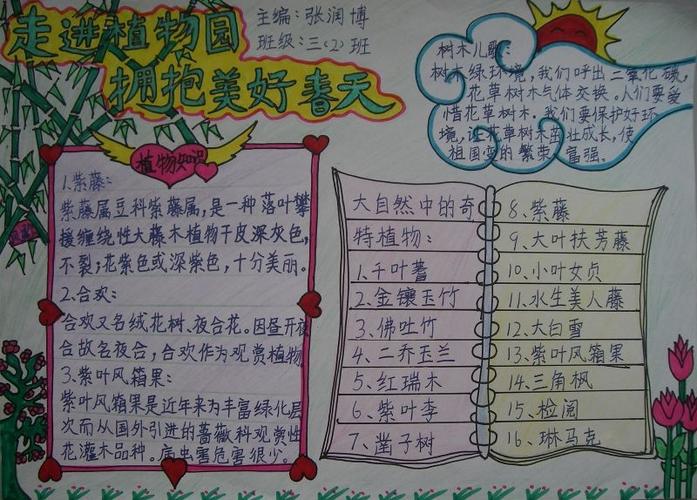 走进植物园
拥抱美好春天
主编:张润博
班级:三(2)班
树木儿歌:
树木绿环境,我们呼出二氧化碳,
花草树木气体交换。人们要爱
惜花草树木,我们要保护好环
境,让花草树木茁壮成长,使
祖国变的繁荣、富强。
植物知识
1.紫藤:
紫藤属豆科紫藤属,是一种落叶攀
援缠绕性大藤木植物干皮深灰色,
不裂;花紫色或深紫色,十分美丽。
2.合欢:
合欢又名绒花树、夜合花。因昼开夜
合故名夜合,合欢作为观赏植物
3.紫叶风箱果:
紫叶风箱果是近年来为丰富绿化层
次而从国外引进的蔷薇科观赏性
花灌木品种。病虫害危害很少。
大自然中的奇
特植物:
1.千叶蓍
2.金镶玉竹
3.佛吐竹
4.二乔玉兰
5.红瑞木
6.紫叶李
7.凿子树
8.紫藤
9.大叶扶芳藤
10.小叶女贞
11.水生美人藤
12.大白雪
13.紫叶风箱果
14.三角枫
15.检阅
16.琳马克